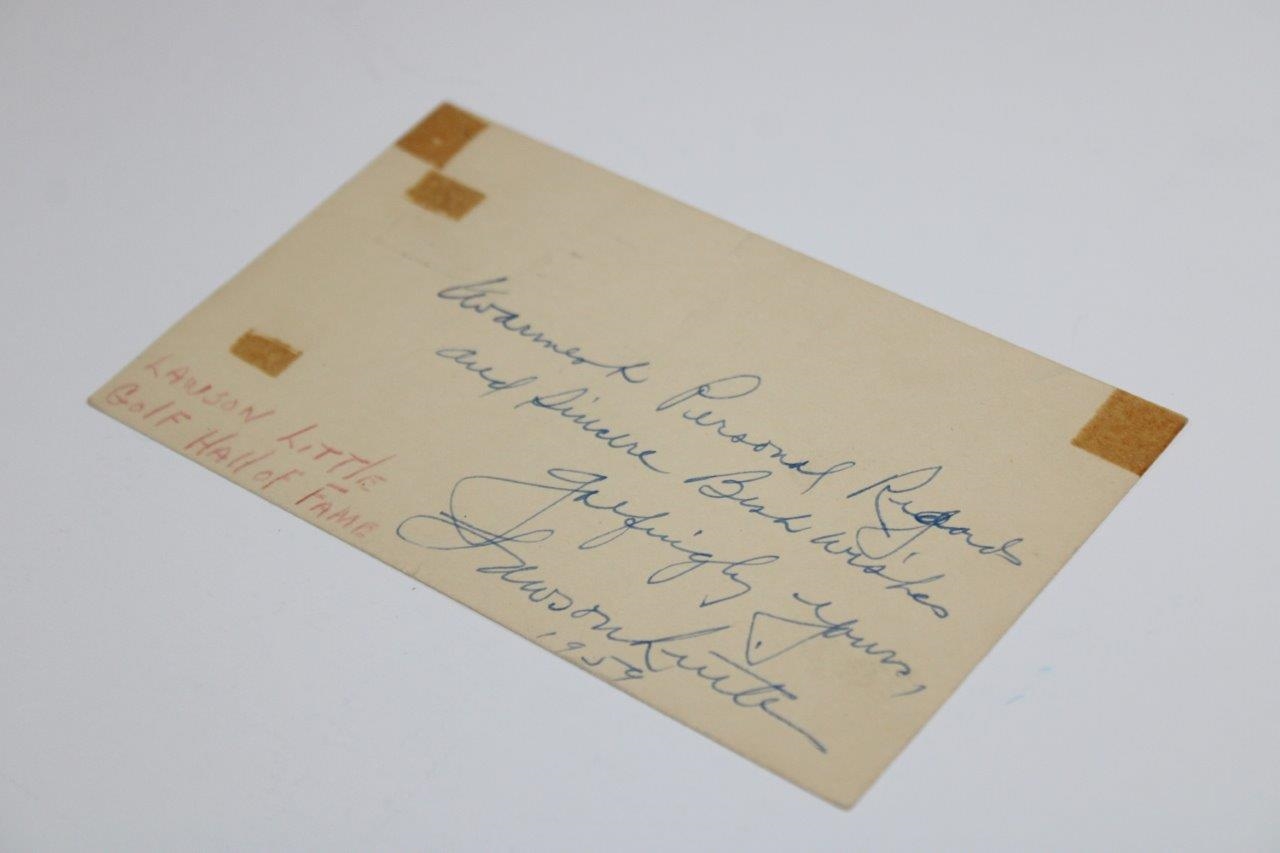 Warmest Personal Regards
and Sincere Best wishes
Golfingly yours,
Lawson Little
1959
LAWSON LITTLE
GOLF HALL OF FAME